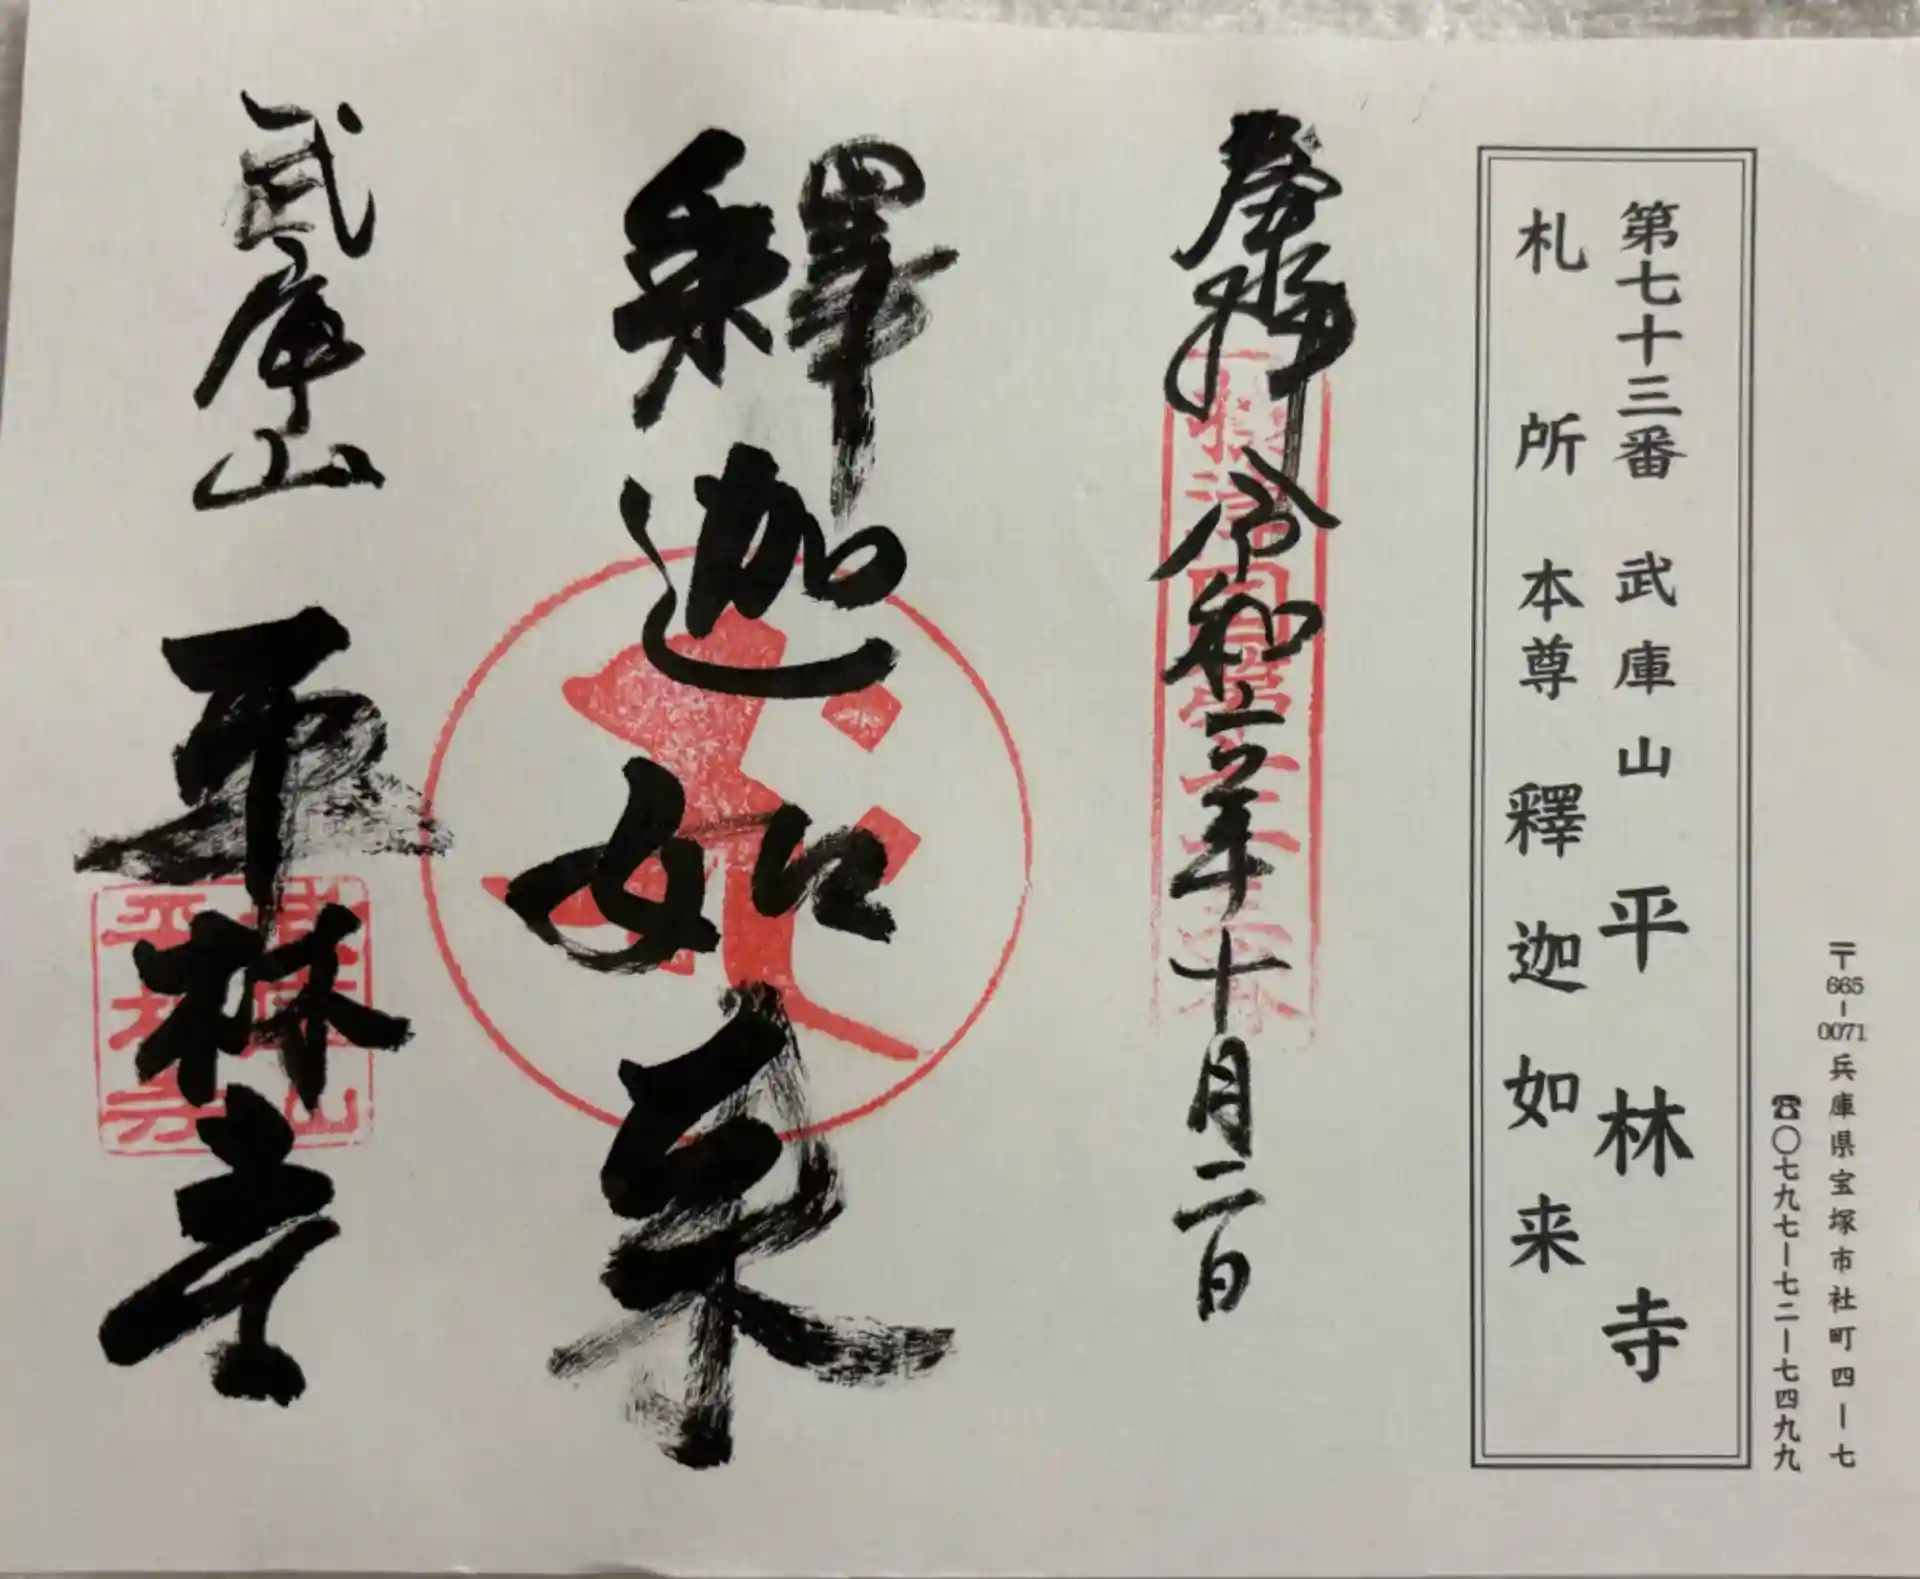 〒665-0071 兵庫県宝塚市社町四ー七
☎〇七九七ー七二ー七四九九
第七十三番 武庫山 平林寺
札所本尊 釋迦如来
奉拝 令和六年十月二日
摂津国第七十三番
釋迦如来
武庫山 平林寺
武庫山
平林寺